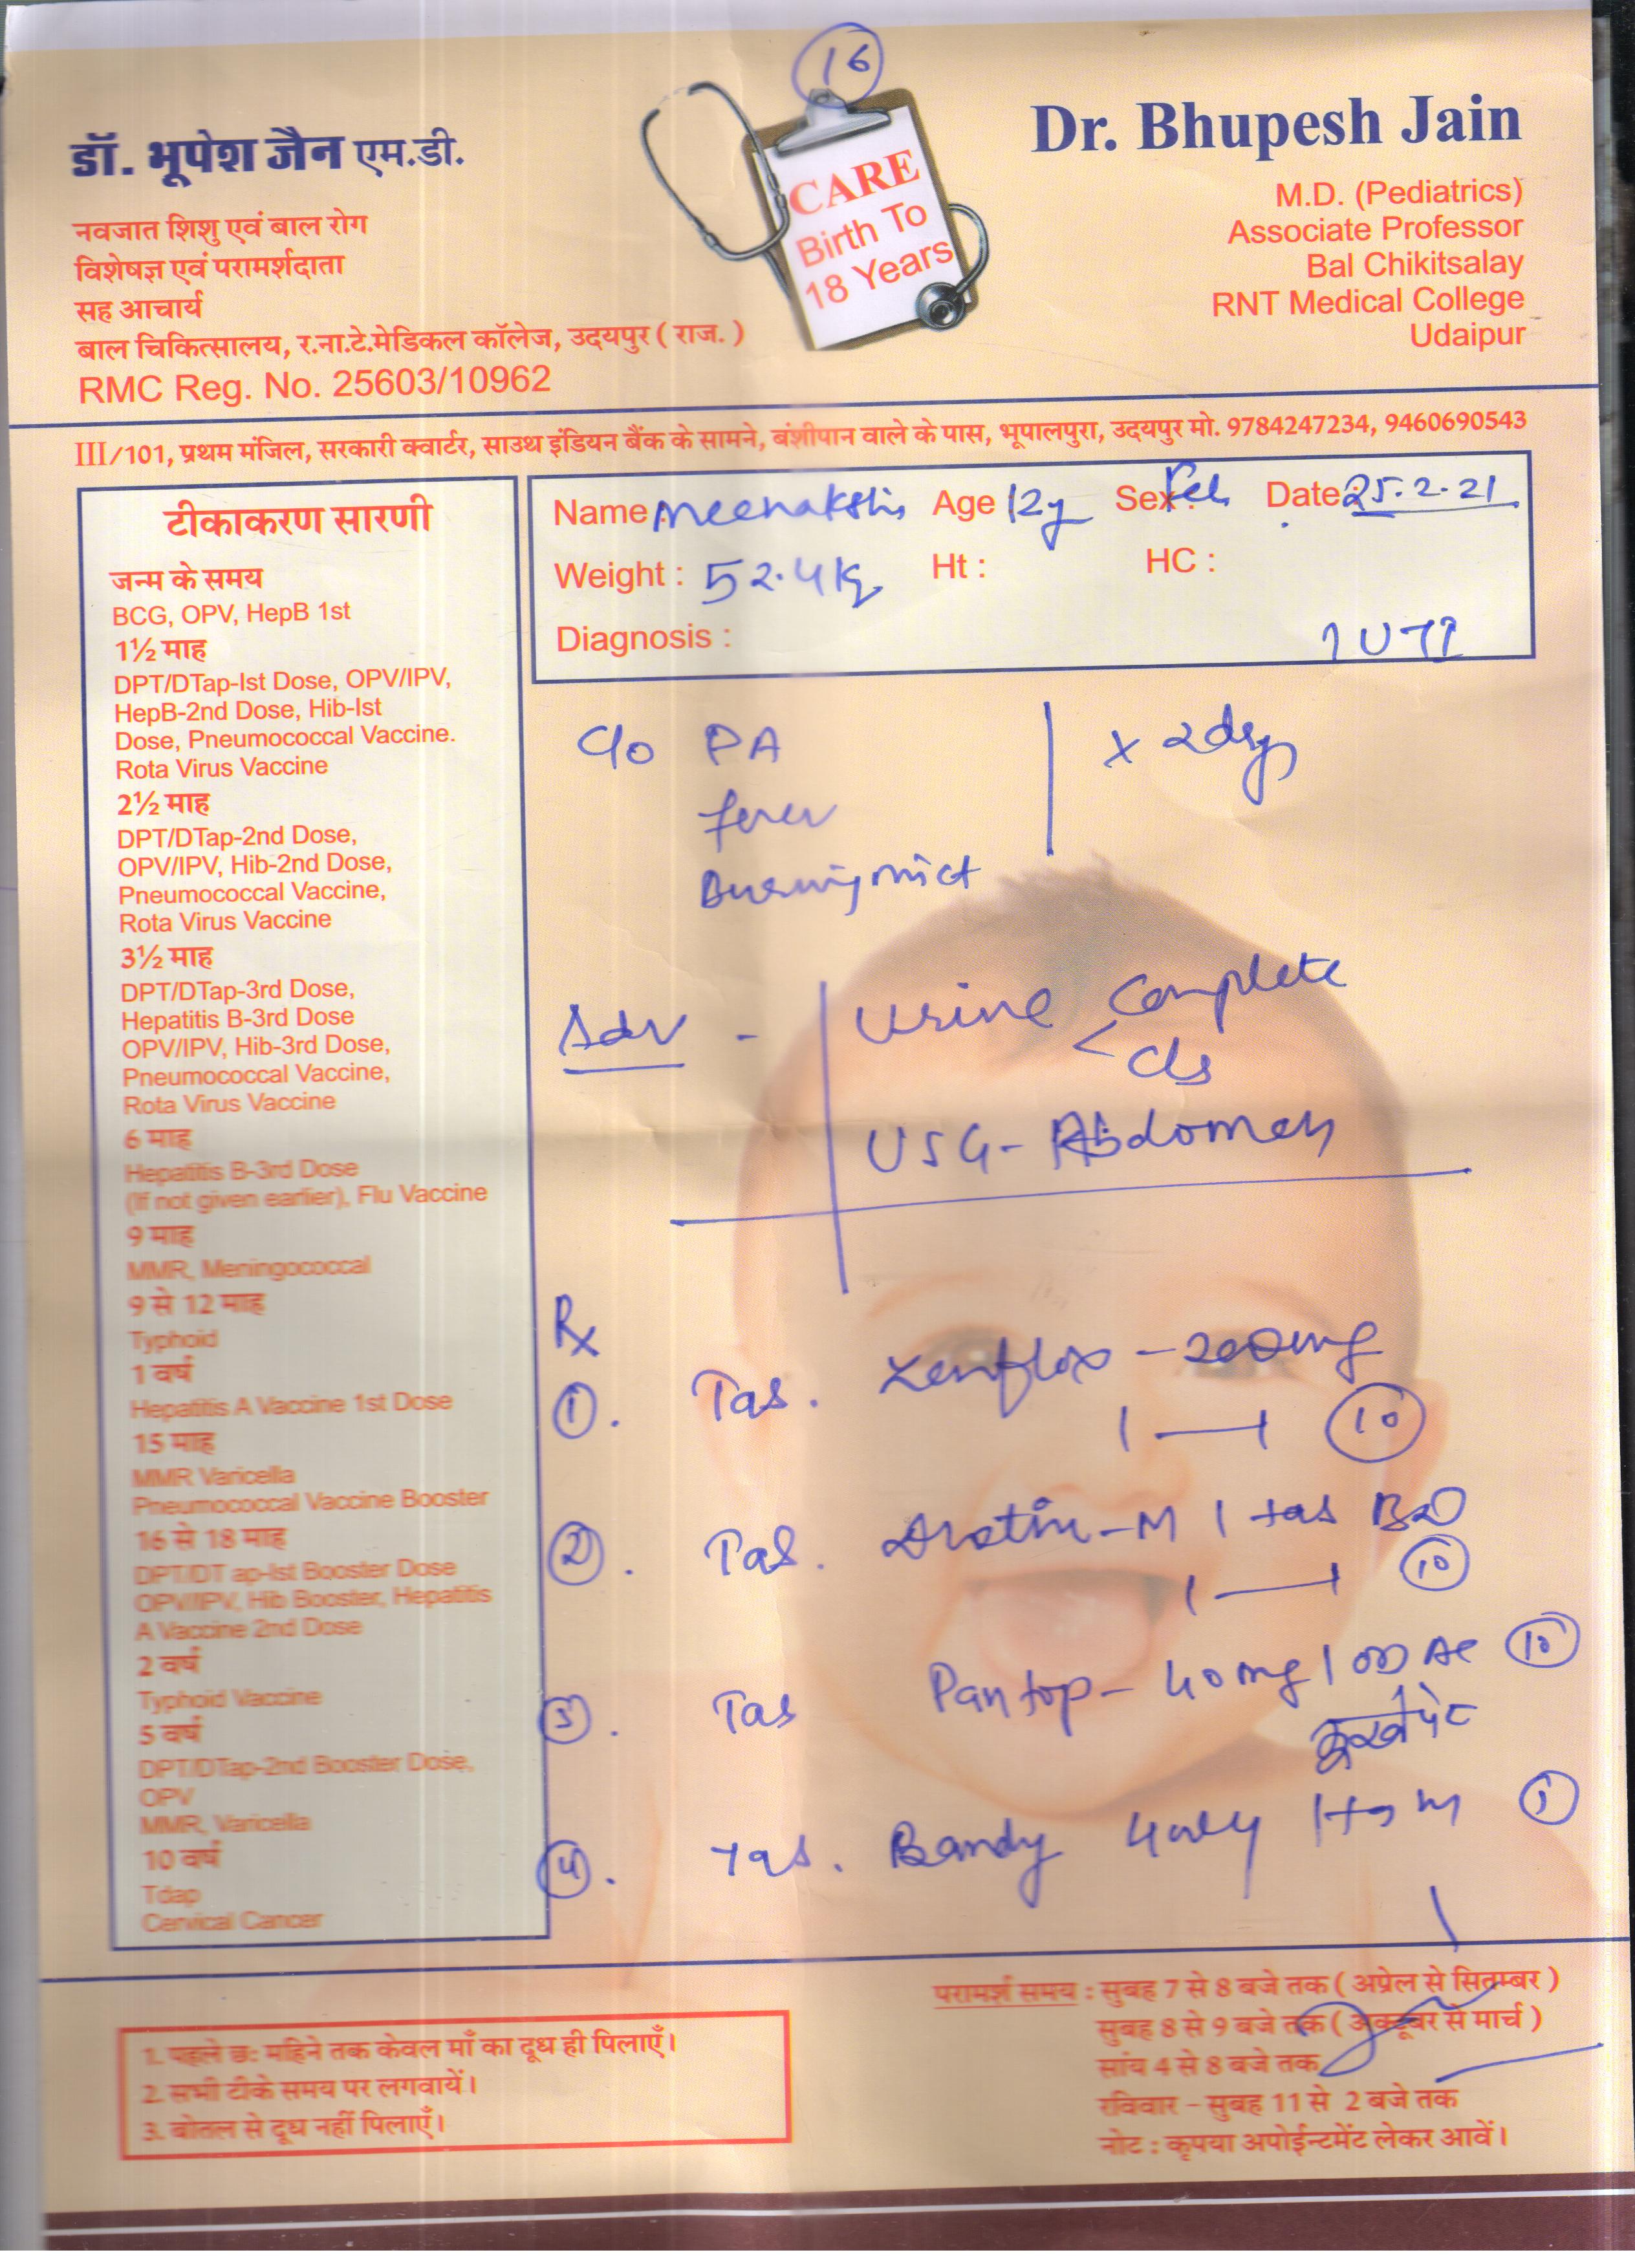 16
डॉ. भूपेश जैन एम.डी.
नवजात शिशु एवं बाल रोग
विशेषज्ञ एवं परामर्शदाता
सह आचार्य
बाल चिकित्सालय, र.ना.टे.मेडिकल कॉलेज, उदयपुर ( राज. )
RMC Reg. No. 25603/10962
CARE
Birth To
18 Years
Dr. Bhupesh Jain
M.D. (Pediatrics)
Associate Professor
Bal Chikitsalay
RNT Medical College
Udaipur
III/101, प्रथम मंजिल, सरकारी क्वार्टर, साउथ इंडियन बैंक के सामने, बंशीपान वाले के पास, भूपालपुरा, उदयपुर मो. 9784247234, 9460690543
टीकाकरण सारणी
जन्म के समय
BCG, OPV, HepB 1st
1½ माह
DPT/DTap-Ist Dose, OPV/IPV,
HepB-2nd Dose, Hib-Ist
Dose, Pneumococcal Vaccine.
Rota Virus Vaccine
2½ माह
DPT/DTap-2nd Dose,
OPV/IPV, Hib-2nd Dose,
Pneumococcal Vaccine,
Rota Virus Vaccine
3½ माह
DPT/DTap-3rd Dose,
Hepatitis B-3rd Dose
OPV/IPV, Hib-3rd Dose,
Pneumococcal Vaccine,
Rota Virus Vaccine
6 माह
Hepatitis B-3rd Dose
(If not given earlier), Flu Vaccine
9 माह
MMR, Meningococcal
9 से 12 माह
Typhoid
1 वर्ष
Hepatitis A Vaccine 1st Dose
15 माह
MMR Varicella
Pneumococcal Vaccine Booster
16 से 18 माह
DPT/DT ap-Ist Booster Dose
OPV/IPV, Hib Booster, Hepatitis
A Vaccine 2nd Dose
2 वर्ष
Typhoid Vaccine
5 वर्ष
DPT/DTap-2nd Booster Dose,
OPV
MMR, Varicella
10 वर्ष
Tdap
Cervical Cancer
Name : Meenakshi Age 12y Sex : Date : 25.2.21
Weight : 52.4 kg Ht : HC :
Diagnosis : ? UTI
C/o PA x 2 days
fever
Burning mict
Adv - Urine Complete
C/s
USG - Abdomen
Rx
1. Tab. Zenflox - 200mg
1 — 1 10
2. Tab. 1 tab BD
1 — 1 10
3. Tab Pantop - 40mg 1 OD AC 10
भूखे पेट
4. Tab. Bandy 1
परामर्श समय : सुबह 7 से 8 बजे तक ( अप्रेल से सितम्बर )
सुबह 8 से 9 बजे तक ( अक्टूबर से मार्च )
सांय 4 से 8 बजे तक
रविवार - सुबह 11 से 2 बजे तक
नोट : कृपया अपोईन्टमेंट लेकर आवें।
1. पहले छः महिने तक केवल माँ का दूध ही पिलाएँ।
2. सभी टीके समय पर लगवायें।
3. बोतल से दूध नहीं पिलाएँ।